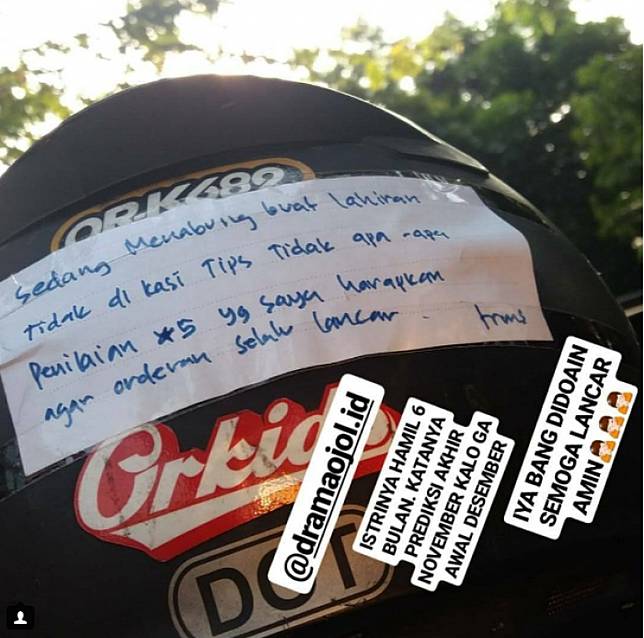 OR-K689
Sedang Menabung buat Lahiran
Tidak di kasi Tips Tidak apa-apa
Penilaian *5 yg saya harapkan
agar orderan selalu lancar. trms
Orkids
DOT
@dramaojol.id
ISTRINYA HAMIL 6
BULAN. KATANYA
PREDIKSI AKHIR
NOVEMBER KALO GA
AWAL DESEMBER
IYA BANG DIDOAIN
SEMOGA LANCAR
AMIN🙏🙏🙏